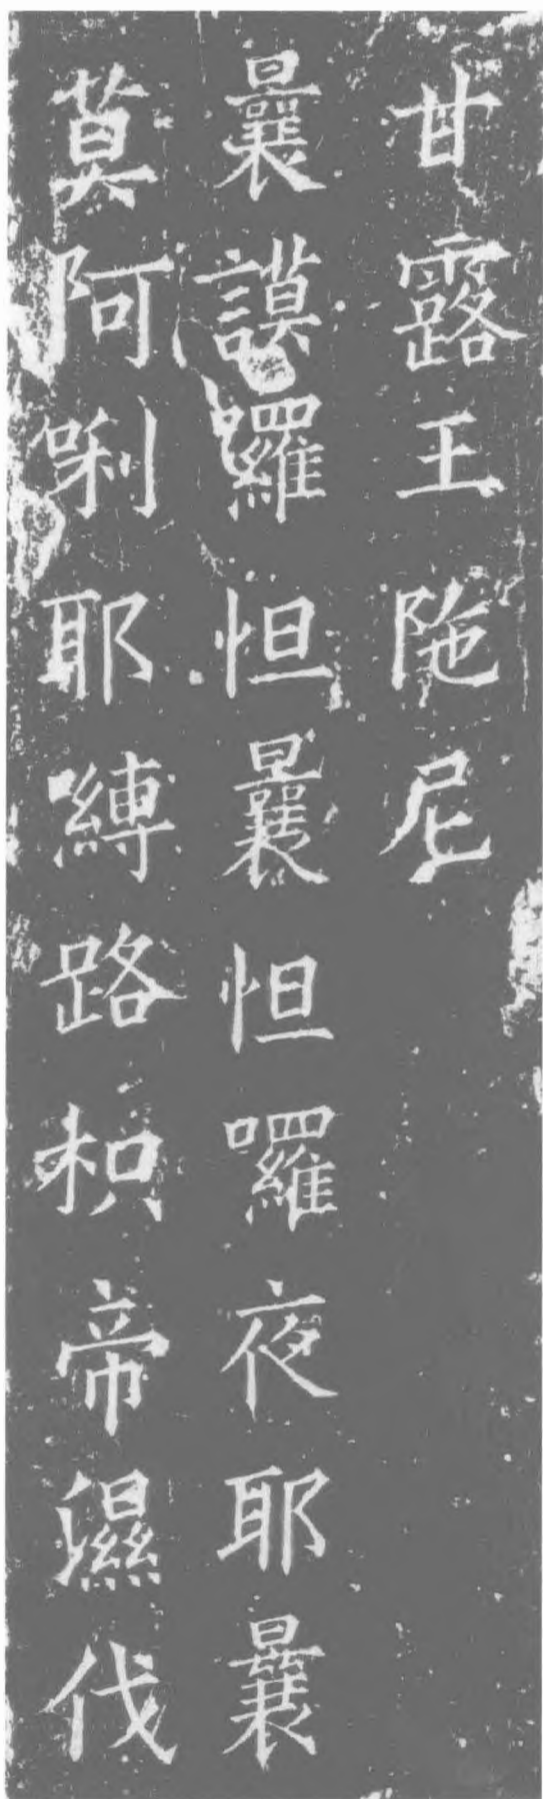 甘露王陁尼
曩謨囉怛曩怛囉夜耶曩
莫阿唎耶縛路枳帝濕伐